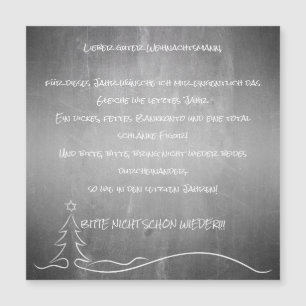 Lieber guter Weihnachtsmann,
für dieses Jahr wünsche ich mir eigentlich das
Gleiche wie letztes Jahr.
Ein dickes, fettes Bankkonto und eine total
schlanke Figur!
Und bitte, bitte, bring nicht wieder beides
durcheinander,
so wie in den letzten Jahren!
BITTE NICHT SCHON WIEDER!!!